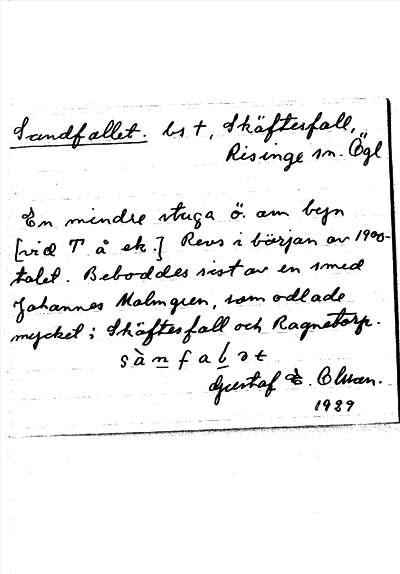 Sandfallet. bs †, Skäftesfall,
Risinge sn. Ögl
En mindre stuga ö. om byn
[vid T å ek.] Revs i början av 1900-
talet. Beboddes sist av en smed
Johannes Malmgren, som odlade
mycket i Skäftesfall och Ragnetorp.
sànfabət
Gustaf E. Olman.
1939